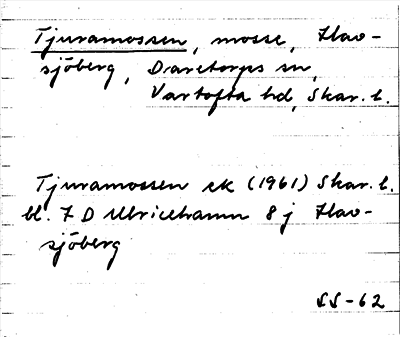 Tjuramossen, mosse, Hav-
sjöberg, Daretorps sn,
Vartofta hd, Skar. l.
Tjuramossen ek (1961) Skar. l.
bl. 7 D Ulricehamn 8 j Hav-
sjöberg
SS-62